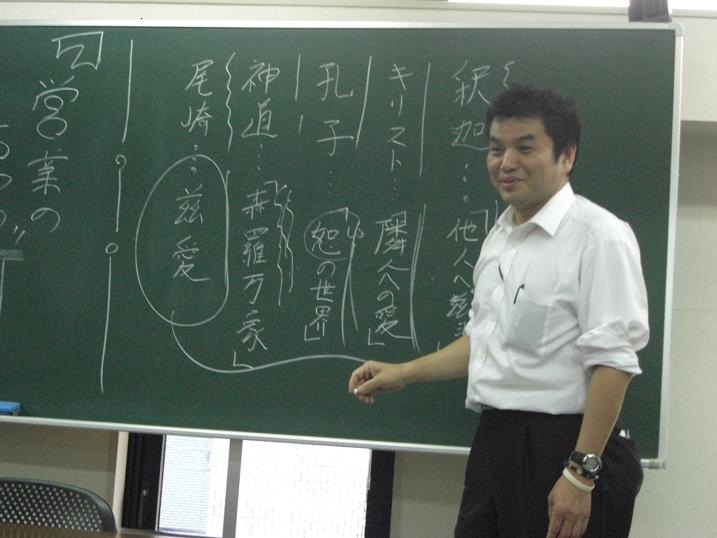 釈迦…「他人へ慈
キリスト…「隣人への愛」
孔子…「恕の世界」
神道…「森羅万象」
尾崎…慈愛
営業の